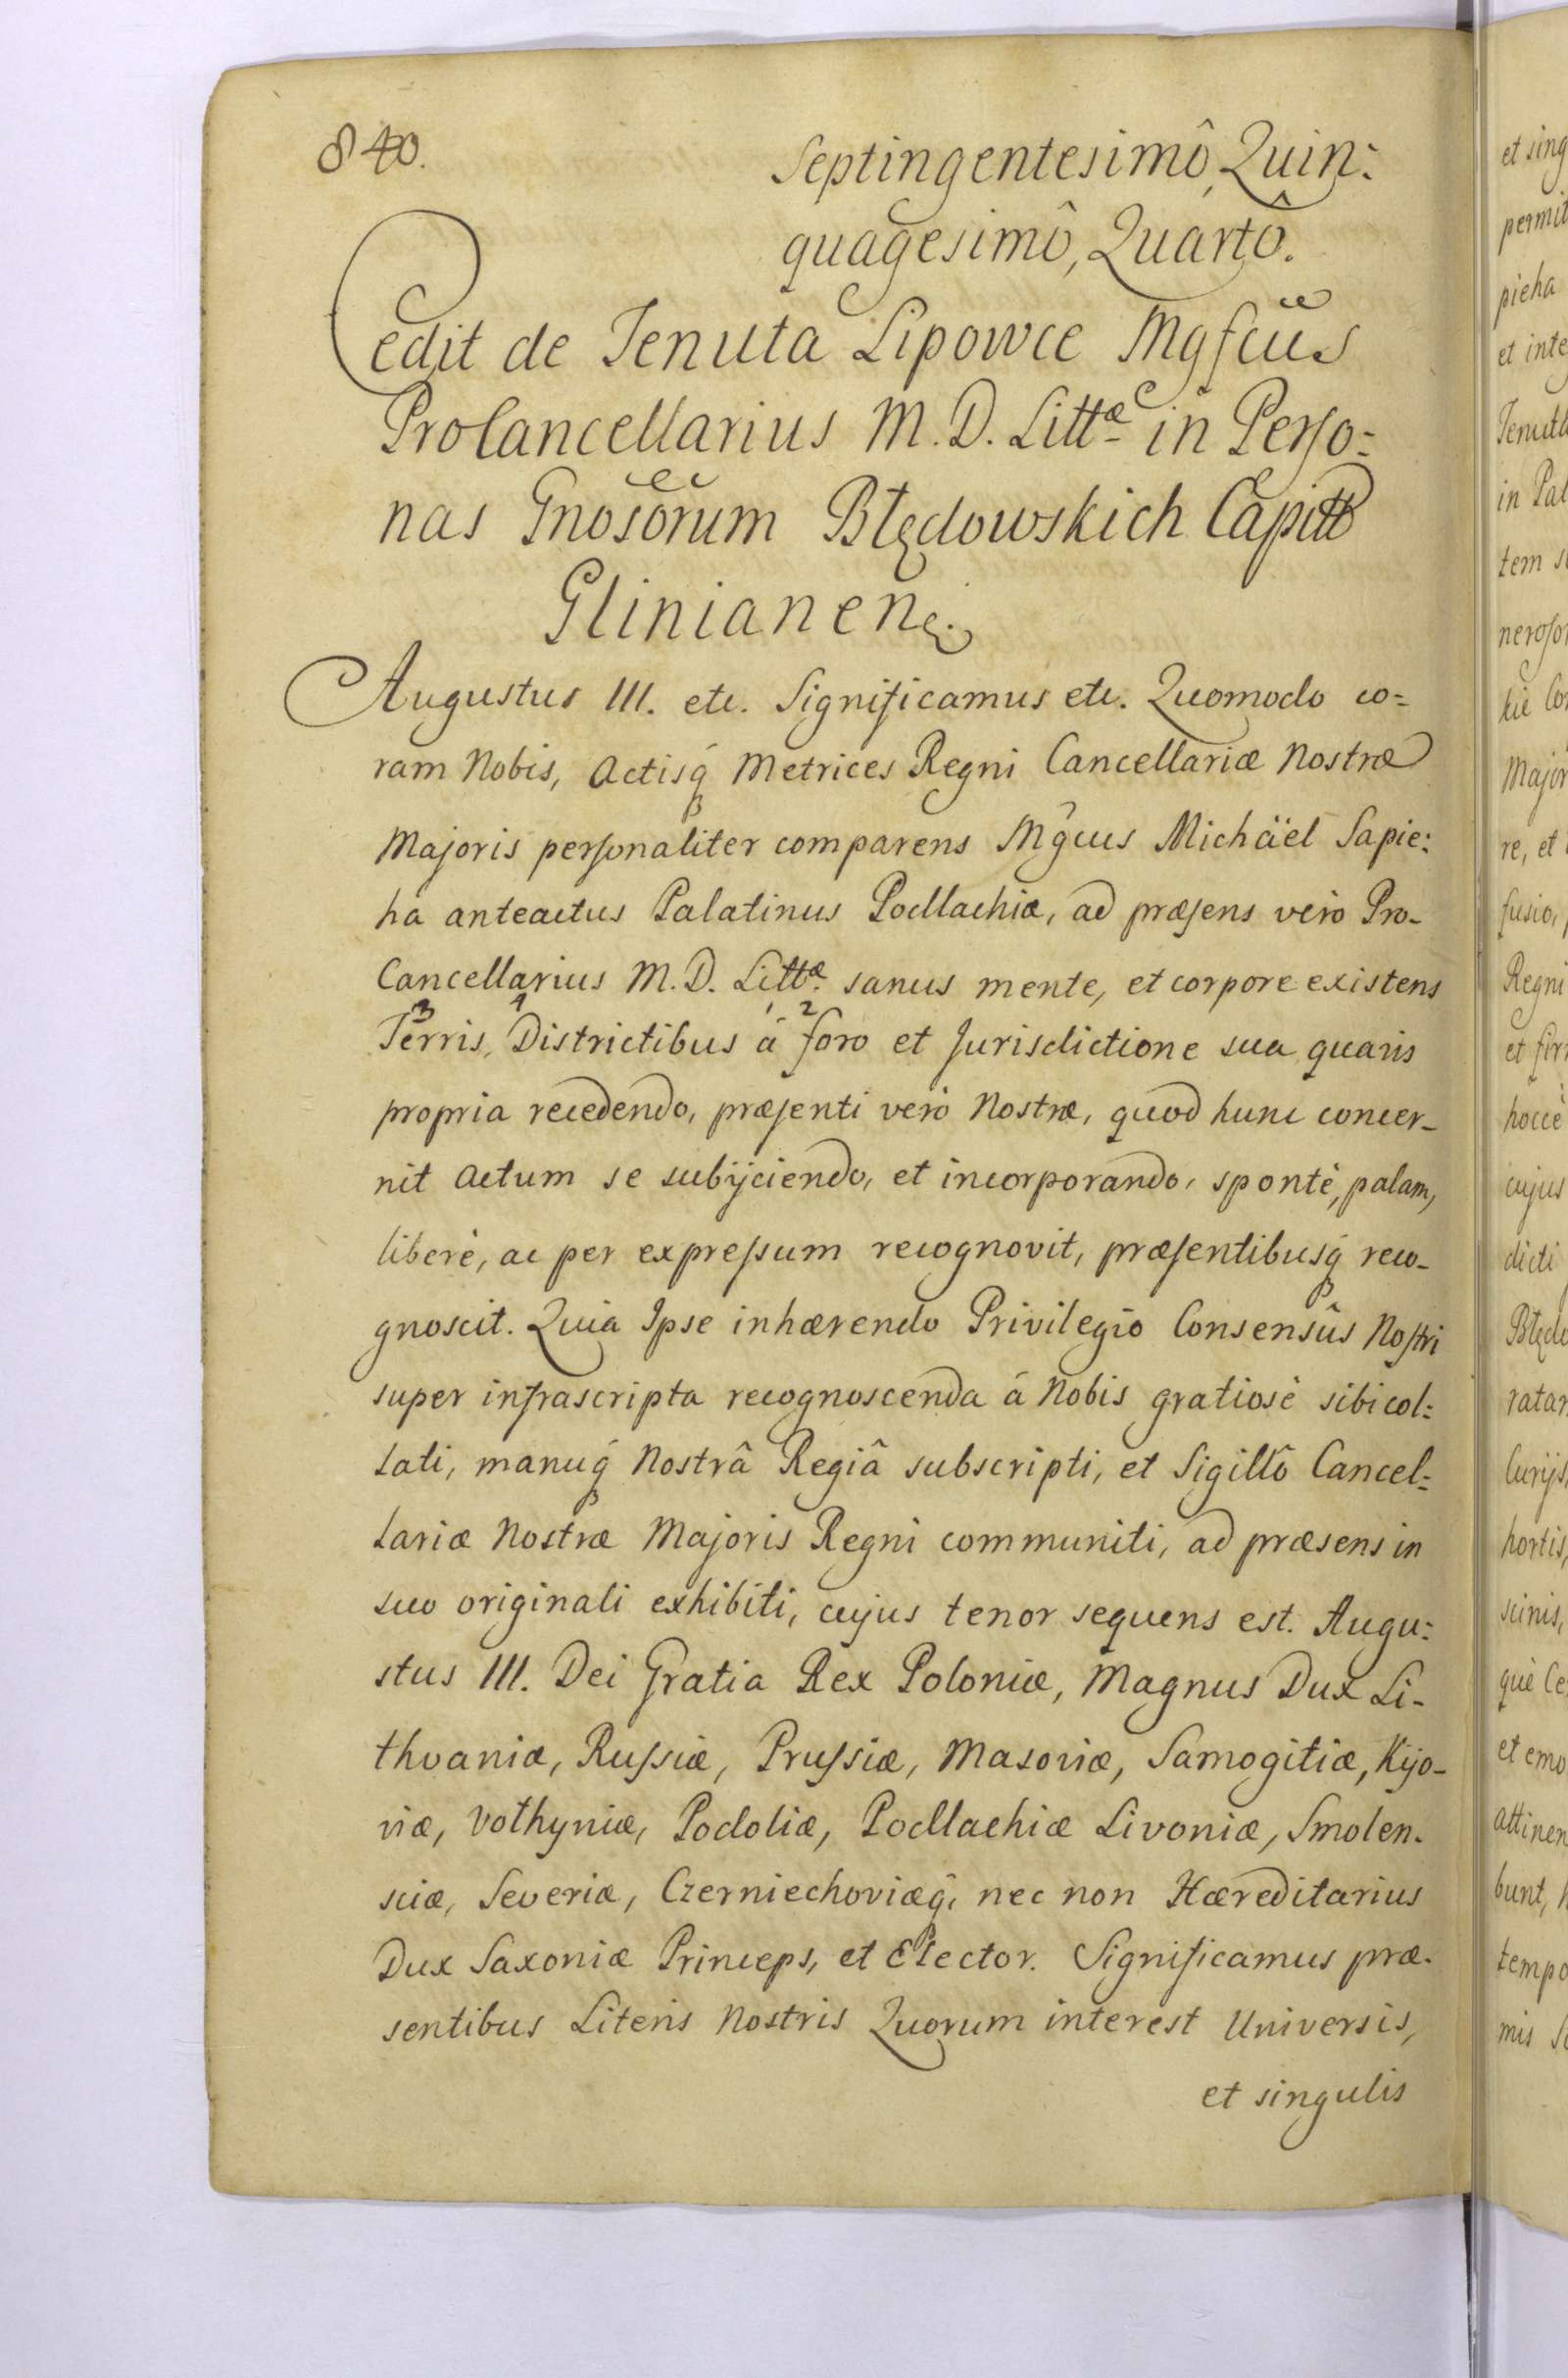 840.
Septingentesimô Quin:
quagesimô, Quartô.
Cedit de Tenuta Lipowce Mgfcus
ProCancellarius M. D. Littæ in Perso:
nas Gnosorum Błędowskich Capitt
Glinianen.
Augustus III. etc. Significamus etc. Quomodo co=
ram Nobis, Actisq́ Metrices Regni Cancellariæ Nostræ
Majoris personaliter comparens Mgcus Michäel Sapie:
ha anteactus Palatinus Podlachiæ, ad præsens vero Pro-
Cancellarius M. D. Littæ. sanus mente, et corpore existens
3 4 1 2
Terris, Districtibus á foro et Jurisdictione sua quavis
propria recedendo, præsenti verò Nostræ, quod hunc concer-
nit Actum se subijciendo, et incorporando, spontè, palam,
liberè, ac per expressum recognovit, præsentibusq́ reco-
gnoscit. Quia Ipse inhærendo Privilegio Consensûs Nostri
super infrascripta recognoscenda á Nobis gratiosè sibi col:
lati, manuq́ Nostrâ Regiâ subscripti, et Sigillô Cancel:
lariæ Nostræ Majoris Regni communiti, ad præsens in
suo originali exhibiti, cujus tenor sequens est. Augu:
stus III. Dei Gratia Rex Poloniæ, Magnus Dux Li-
thvaniæ, Russiæ, Prussiæ, Masoviæ, Samogitiæ, Kijo-
viæ, Volhyniæ, Podoliæ, Podlachiæ Livoniæ, Smolen-
sciæ, Severiæ, Czerniechoviæq́, nec non Hæreditarius
Dux Saxoniæ Princeps, et Elector. Significamus præ-
sentibus Literis Nostris Quorum interest Universis,
et singulis
et sing
permit
pieha
et inte
Tenuta
in Pal
tem
neroso
kie
Major
re, et
fusio,
Regni
et fir
hoccè
cujus
dicti
Błędo
ratar
Curijs,
hortis,
scinis,
què Ce
et emo
attinen
bunt,
tempo
mis